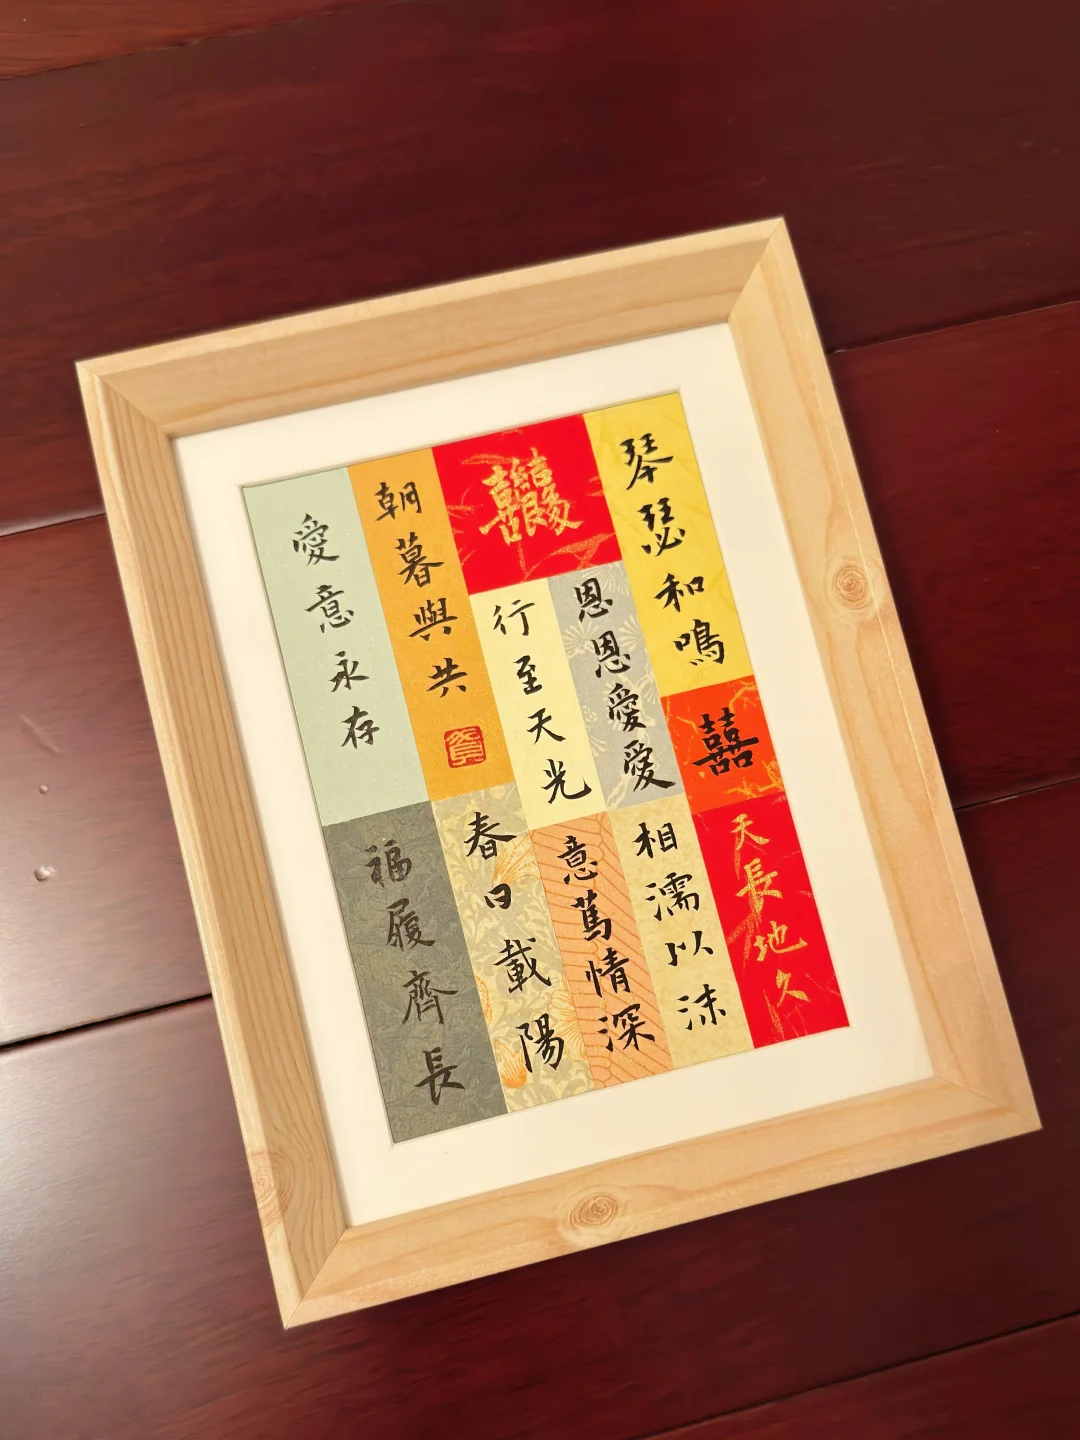 琴瑟和鳴
囍
天長地久
恩恩愛愛
相濡以沫
行至天光
意篤情深
朝暮與共
春日載陽
愛意永存
福履齊長